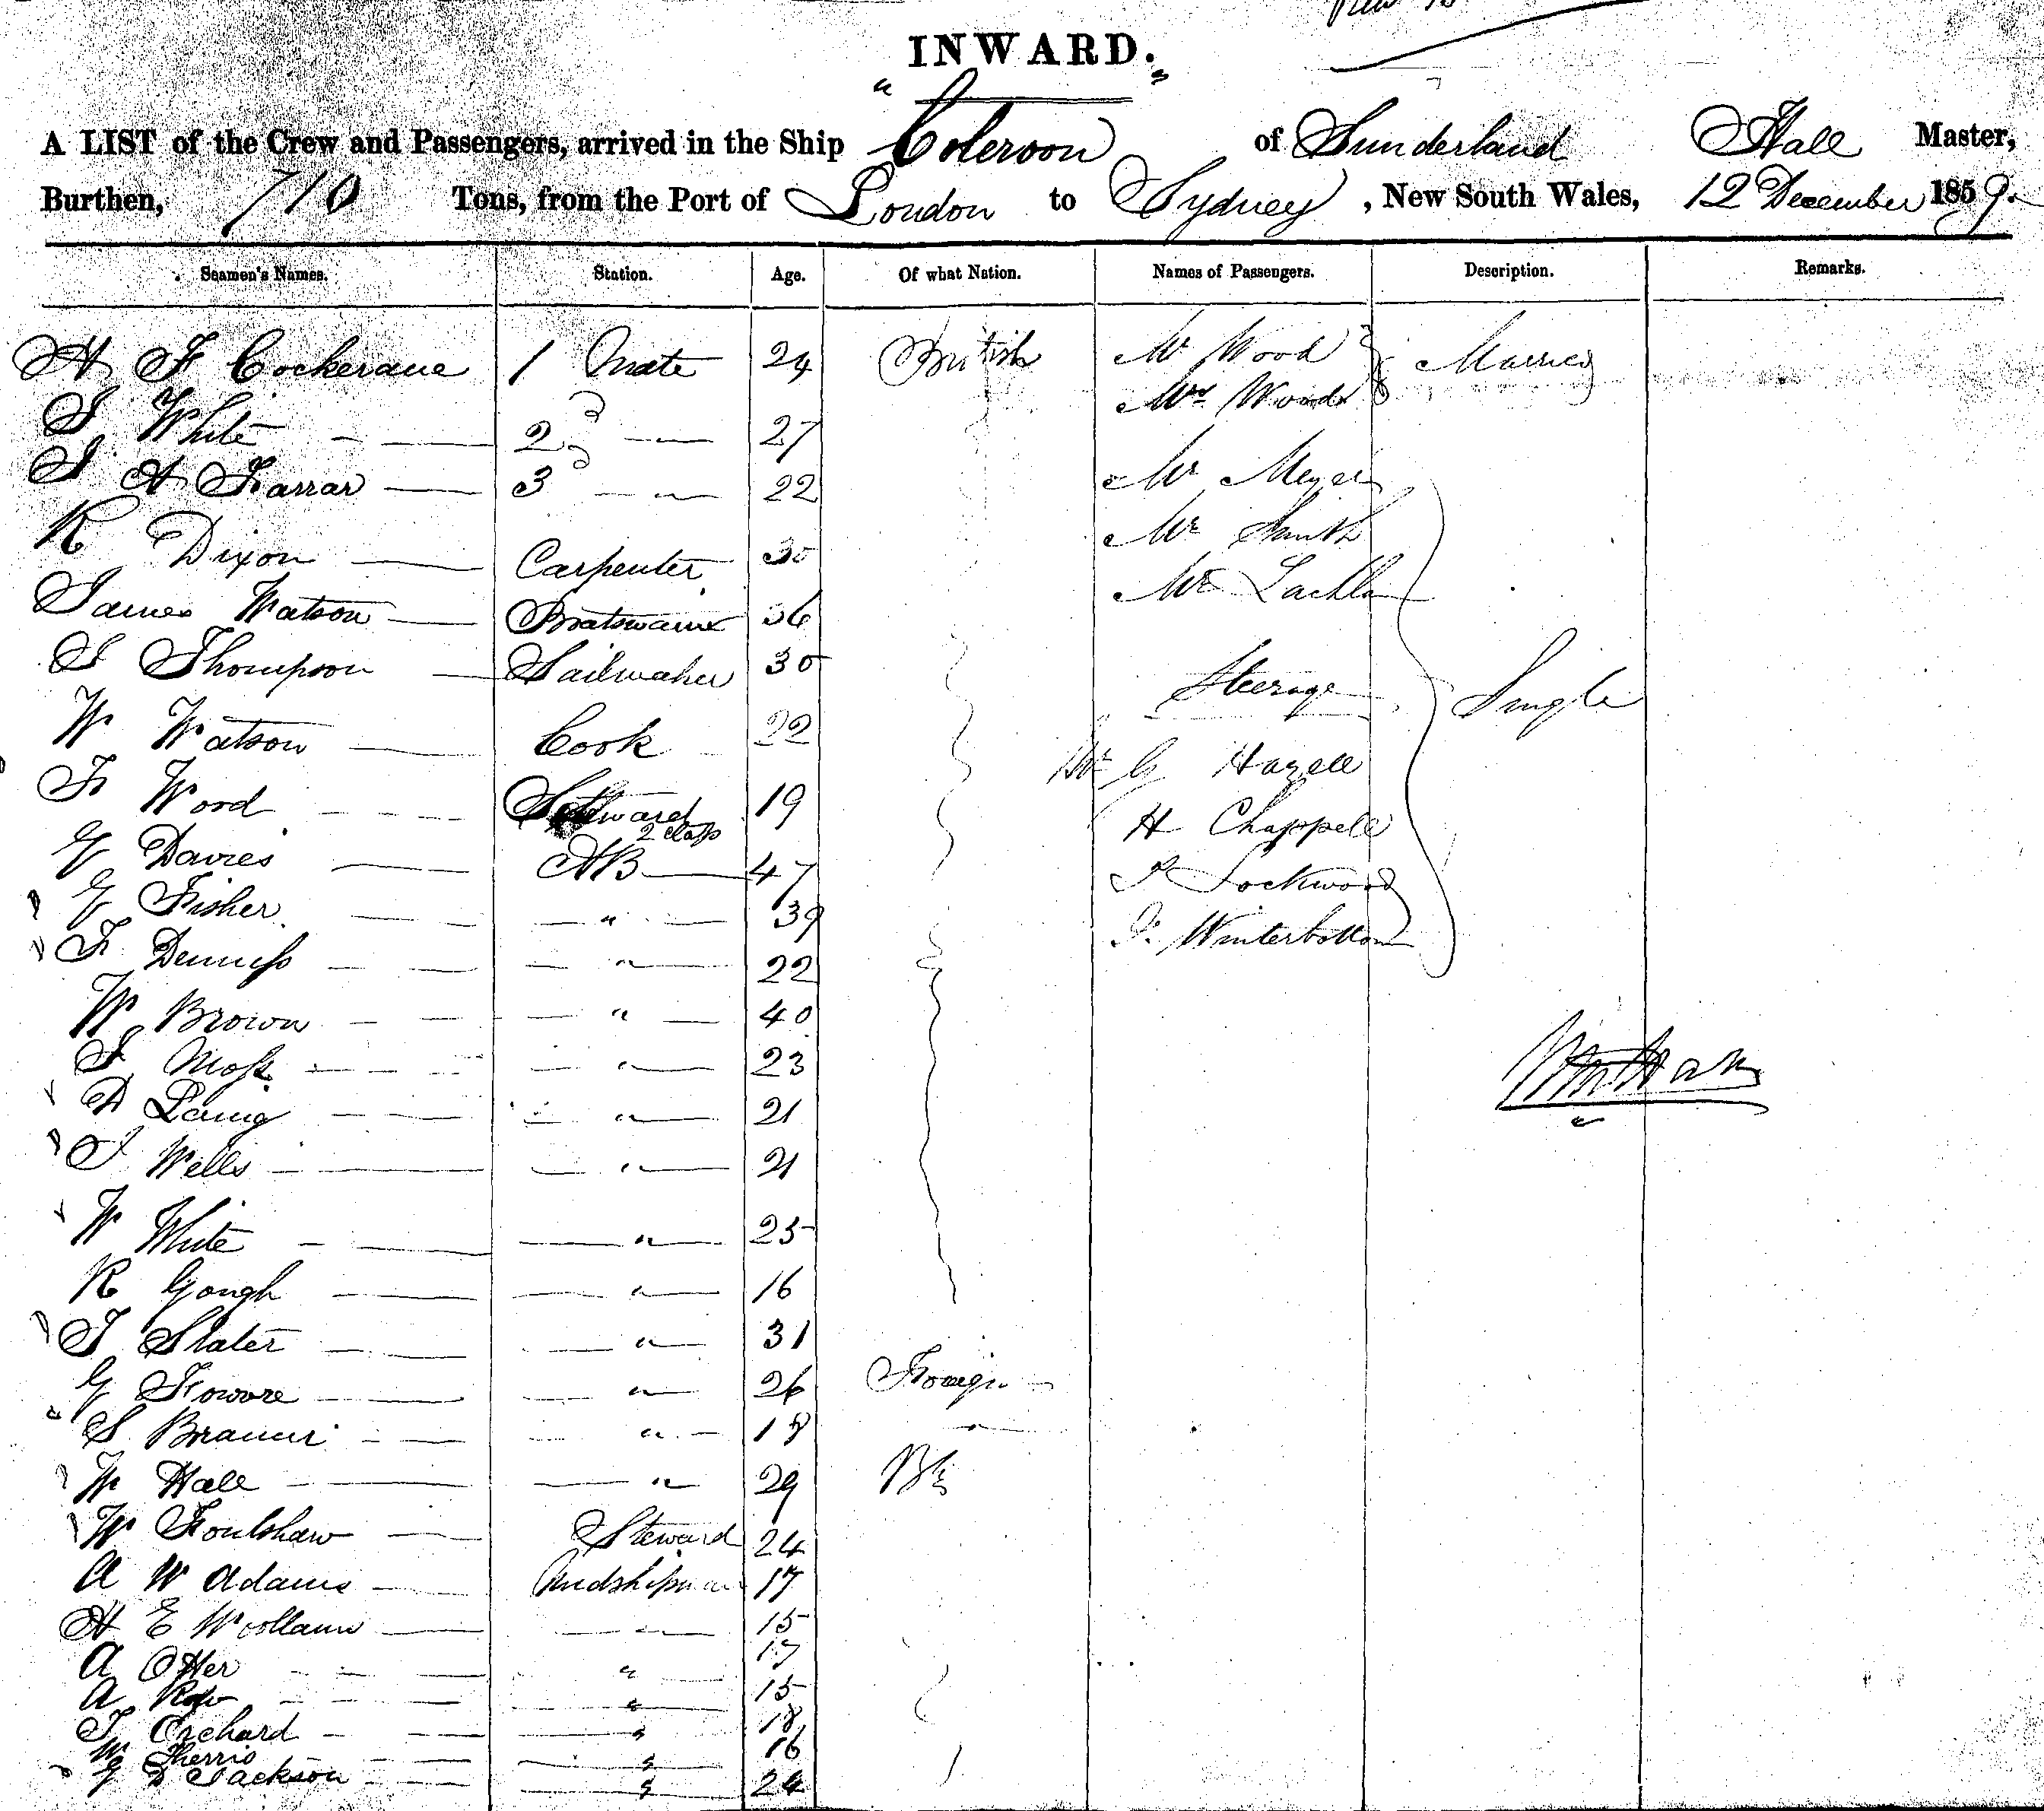 INWARD.
A LIST of the Crew and Passengers, arrived in the Ship "Coleroon" of Sunderland Hall Master,
Burthen, 710 Tons, from the Port of London to Sydney, New South Wales, 12 December 1859.
Seamen's Names. Station. Age. Of what Nation. Names of Passengers. Description. Remarks.
H F Cockerane 1 Mate 24 British Mr Wood Married
Mrs Wood
J White 2 27
J A Farrar 3 " 22 Mr Meyer
R Dixon Carpenter 30 Mr Smith
James Watson Boatswain 36 Mr Lachlan
J Thompson Sailmaker 30 Steerage Single
W Watson Cook 22
F Wood Steward 19 Mr G Hazell
2 class
G Davies AB 47 H Chappell
G Fisher " 39 Lockwood
F Denniss " 22 J. Winterbottom
W Brown " 40
J Moss " 23
D Laing " 21
J Wells " 21
W White " 25
R Gough " 16
J Slater " 31
G Foware " 26 Foreign
S " 18 "
W Hall " 29 Bh
W Foulshaw Steward 24
A W Adams Midshipman 17
H E Woollams " 15
A Otter " 17
A " 15
J Orchard " 18
W Therris " 16
G D Jackson " 24